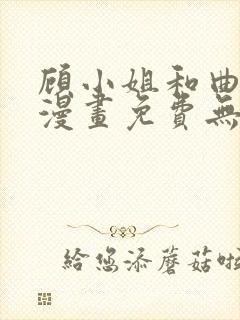 顾小姐和曲
漫畫免費無
給您添蘑菇啦